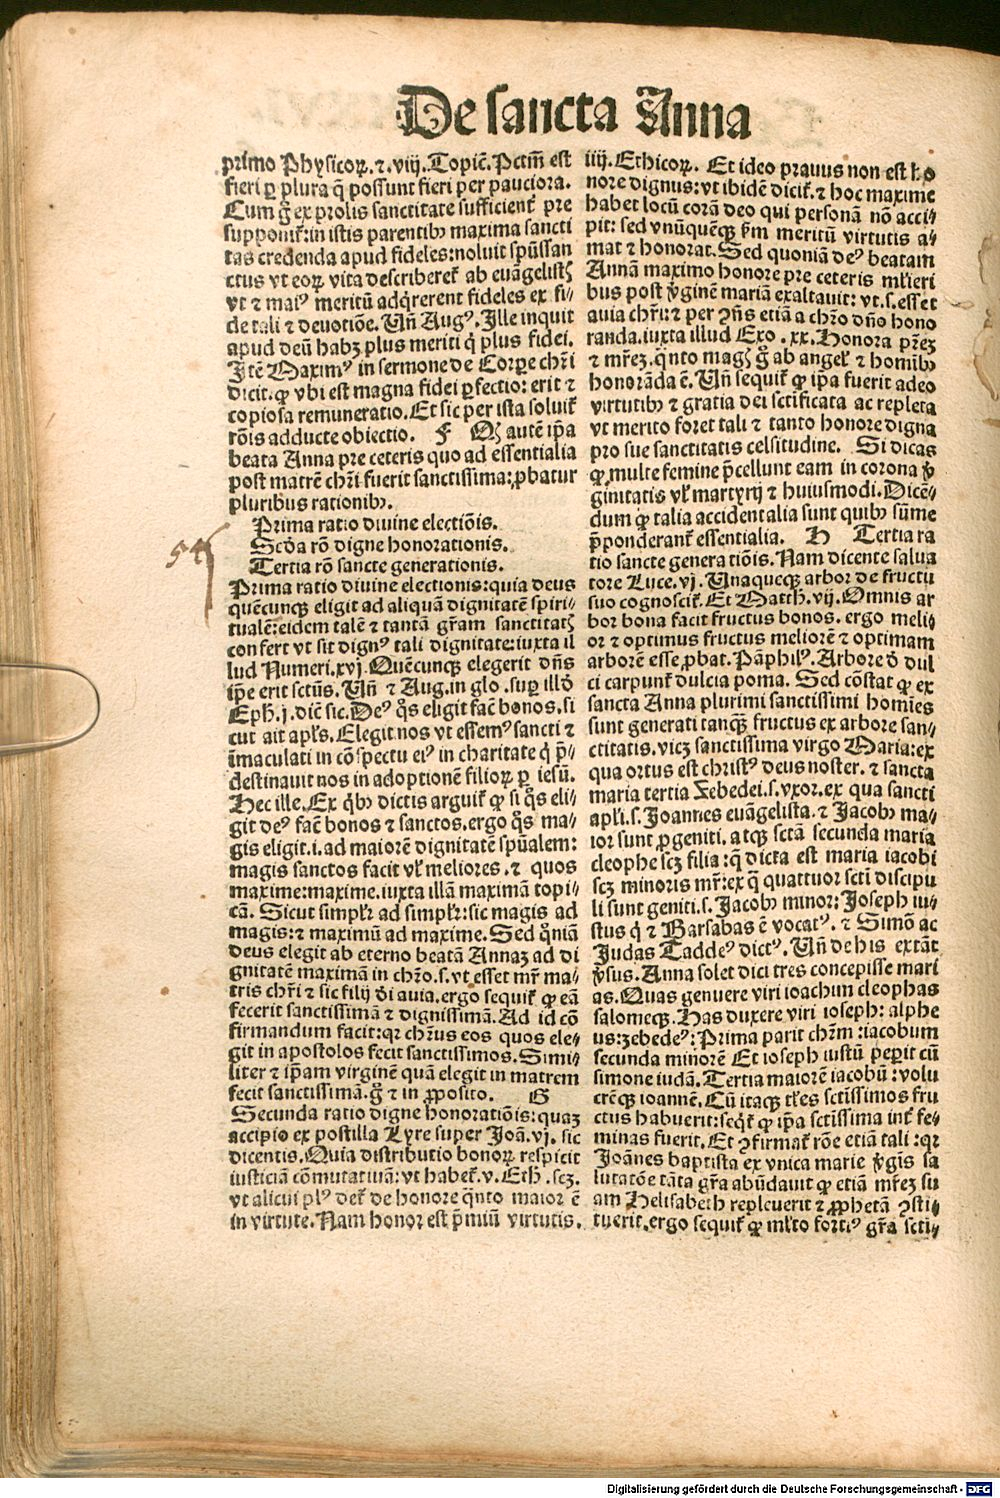 De sancta Anna
primo Physicoꝝ. ⁊ .viij. Topic̄. Pctm̄ est
fieri ꝑ plura q̄ possunt fieri per pauciora.
Cum g̊ ex prolis sanctitate sufficient̄ pre
supponit̄: in istis parentibꝰ maxima sancti
tas credenda apud fideles: noluit sp̄ussan
ctus vt eoꝝ vita describeret̄ ab euāgelistꝭ
vt ⁊ maiꝰ meritū adq̄rerent fideles ex fi⸗
de tali ⁊ deuotiōe. Un̄ Augꝰ. Ille inquit
apud deū habꝫ plus meriti q̇ plus fidei.
Itē Maximꝰ in sermone de Corꝑe chr̄i
dicit. ꝙ vbi est magna fidei ꝑfectio: erit ⁊
copiosa remuneratio. Et sic per ista soluit̄
rōis adducte obiectio. F Qꝫ autē ip̄a
beata Anna pre ceteris quo ad essentialia
post matrē chr̄i fuerit sanctissima: ꝓbatur
pluribus rationibꝰ.
Prima ratio diuine electiōis.
Scd̄a rō digne honorationis.
Tertia rō sancte generationis.
54
Prima ratio diuine electionis: quia deus
quēcunqꝫ eligit ad aliquā dignitatē spiri⸗
tualē: eidem talē ⁊ tantā gr̄am sanctitatꝭ
confert vt sit dignꝰ tali dignitate: iuxta il
lud Numeri. xvj. Quēcunqꝫ elegerit dn̄s
ip̄e erit sctūs. Un̄ ⁊ Aug. in glo. suꝑ illḋ
Eph. j. dicē sic. Deꝰ q̊s eligit fac̄ bonos. si
cut ait apl̄s. Elegit nos vt essemꝰ sancti ⁊
īmaculati in cōspectu eiꝰ in charitate q̇ p̄⸗
destinauit nos in adoptionē filioꝝ ꝑ iesū.
Hec ille. Ex q̇bꝰ dictis arguit̄ ꝙ si q̊s eli⸗
git deꝰ fac̄ bonos ⁊ sanctos. ergo q̊s ma⸗
gis eligit. i. ad maiorē dignitatē sp̄ualem:
magis sanctos facit vl̄ meliores. ⁊ quos
maxime: maxime. iuxta illā maximā topi⸗
cā. Sicut simpl̄r ad simpl̄r: sic magis ad
magis: ⁊ maximū ad maxime. Sed q̄niā
deus elegit ab eterno beatā Annaꝫ ad di
gnitatē maximā in chr̄o. s. vt esset mr̄ ma⸗
tris chr̄i ⁊ sic filij d̄i auia. ergo sequit̄ ꝙ eā
fecerit sanctissimā ⁊ dignissimā. Ad id cō
firmandum facit: qꝛ chr̄us eos quos ele⸗
git in apostolos fecit sanctissimos. Simi⸗
liter ⁊ ip̄am virginē quā elegit in matrem
fecit sanctissimā. g̊ ⁊ in ꝓposito. G
Secunda ratio digne honoratiōis: quaꝫ
accipio ex postilla Lyre super Joā. vj. sic
dicentis. Quia distributio bonoꝝ respicit
iusticiā cōmutatiuā: vt habet̄. v. Eth. scꝫ.
vt alicui plꝰ det̄ de honore q̄nto maior ē
in virtute. Nam honor est p̄miū virtutis.
iiij. Ethicoꝝ. Et ideo prauus non est ho
nore dignus: vt ibidē dicit̄. ⁊ hoc maxime
habet locū corā deo qui personā nō acci⸗
pit: sed vnūquēqꝫ ẜm meritū virtutis a⸗
mat ⁊ honorat. Sed quoniā deꝰ beatam
Annā maximo honore pre ceteris ml̄ieri
bus post v̄ginē mariā exaltauit: vt. s. esset
auia chr̄i: ⁊ per ꝯn̄s etiā a chr̄o dn̄o hono
randa. iuxta illud Exo. xx. Honora pr̄eꝫ
⁊ mr̄eꝫ. q̄nto magꝭ g̊ ab angel̄ ⁊ homībꝰ
honorāda ē. Un̄ sequit̄ ꝙ ip̄a fuerit adeo
virtutibꝰ ⁊ gratia dei sctīficata ac repleta
vt merito foret tali ⁊ tanto honore digna
pro sue sanctitatis celsitudine. Si dicas
ꝙ multe femine p̄cellunt eam in corona v̄
ginitatis vl̄ martyrij ⁊ huiusmodi. Dicē⸗
dum ꝙ talia accidentalia sunt quibꝰ sūme
p̄ponderant̄ essentialia. H Tertia ra
tio sancte generatiōis. Nam dicente salua
tore Luce. vj. Unaquecqꝫ arbor de fructu
suo cognoscit̄. Et Matth. vij. Omnis ar
bor bona facit fructus bonos. ergo meli⸗
or ⁊ optimus fructus meliorē ⁊ optimam
arborē esse ꝓbat. Pāphilꝰ. Arbore d̄ dul
ci carpunt̄ dulcia poma. Sed cōstat ꝙ ex
sancta Anna plurimi sanctissimi homīes
sunt generati tanqꝫ fructus ex arbore san⸗
ctitatis. vicꝫ sanctissima virgo Maria: ex
qua ortus est christꝰ deus noster. ⁊ sancta
maria tertia Zebedei. s. vxor. ex qua sancti
apl̄i. s. Joannes euāgelista. ⁊ Jacobꝰ ma⸗
ior sunt ꝓgeniti. atqꝫ sctā secunda maria
cleophe scꝫ filia: q̄ dicta est maria iacobi
scꝫ minoris mr̄: ex q̄ quattuor sctī discipu
li sunt geniti. s. Jacobꝰ minor: Joseph iu⸗
stus q̇ ⁊ Barsabas ē vocatꝰ. ⁊ Simō ac
Judas Taddeꝰ dictꝰ. Un̄ de his extāt
v̄sus. Anna solet dici tres concepisse mari
as. Quas genuere viri ioachun cleophas
salomeqꝫ. Has duxere viri ioseph: alphe
us: zebedeꝰ: Prima parit chr̄m: iacobum
secunda minorē Et ioseph iustū peperit cū
simone iudā. Tertia maiorē iacobū: volu
crēqꝫ ioannē. Cū itaqꝫ tl̄es sctīssimos fru
ctus habuerit: seq̇t̄ ꝙ ip̄a sctīssima int̄ fe⸗
minas fuerit. Et ꝯfirmat̄ rōe etiā tali: qꝛ
Joānes baptista ex vnica marie v̄gīs sa
lutatōe tāta gr̄a abūdauit ꝙ etiā mr̄eꝫ su
am Helisabeth repleuerit ⁊ ꝓphetā ꝯsti⸗
tuerit. ergo sequit̄ ꝙ ml̄to fortiꝰ gr̄a scti⸗
Digitalisierung gefördert durch die Deutsche Forschungsgemeinschaft - DFG